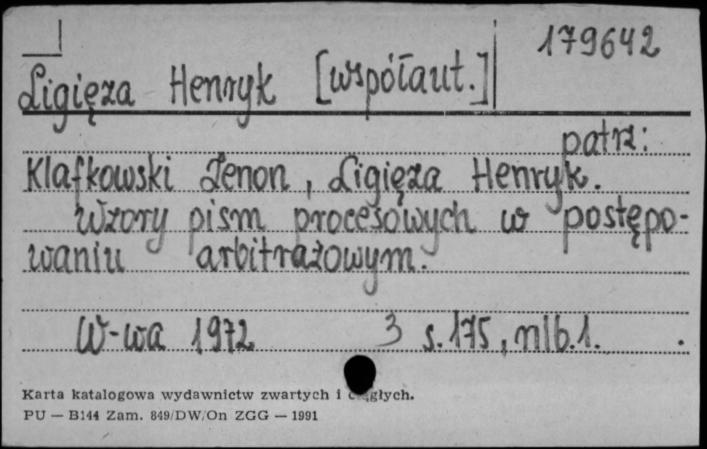 179642
Ligięza Henryk [współaut.]
patrz:
Klafkowski Zenon, Ligięza Henryk.
Wzory pism procesowych w postępo-
waniu arbitrażowym.
W-wa 1972 3 s.175, nlb.1.
Karta katalogowa wydawnictw zwartych i ciągłych.
PU — B144 Zam. 849/DW/On ZGG — 1991